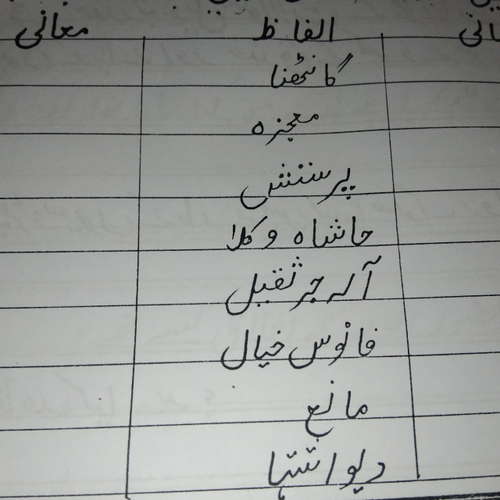 الفاظ معانی
گانٹھنا
معجزہ
پرستش
حاشاہ وکلا
آلہ جر ثقیل
فانوس خیال
مانع
دیواشتہا